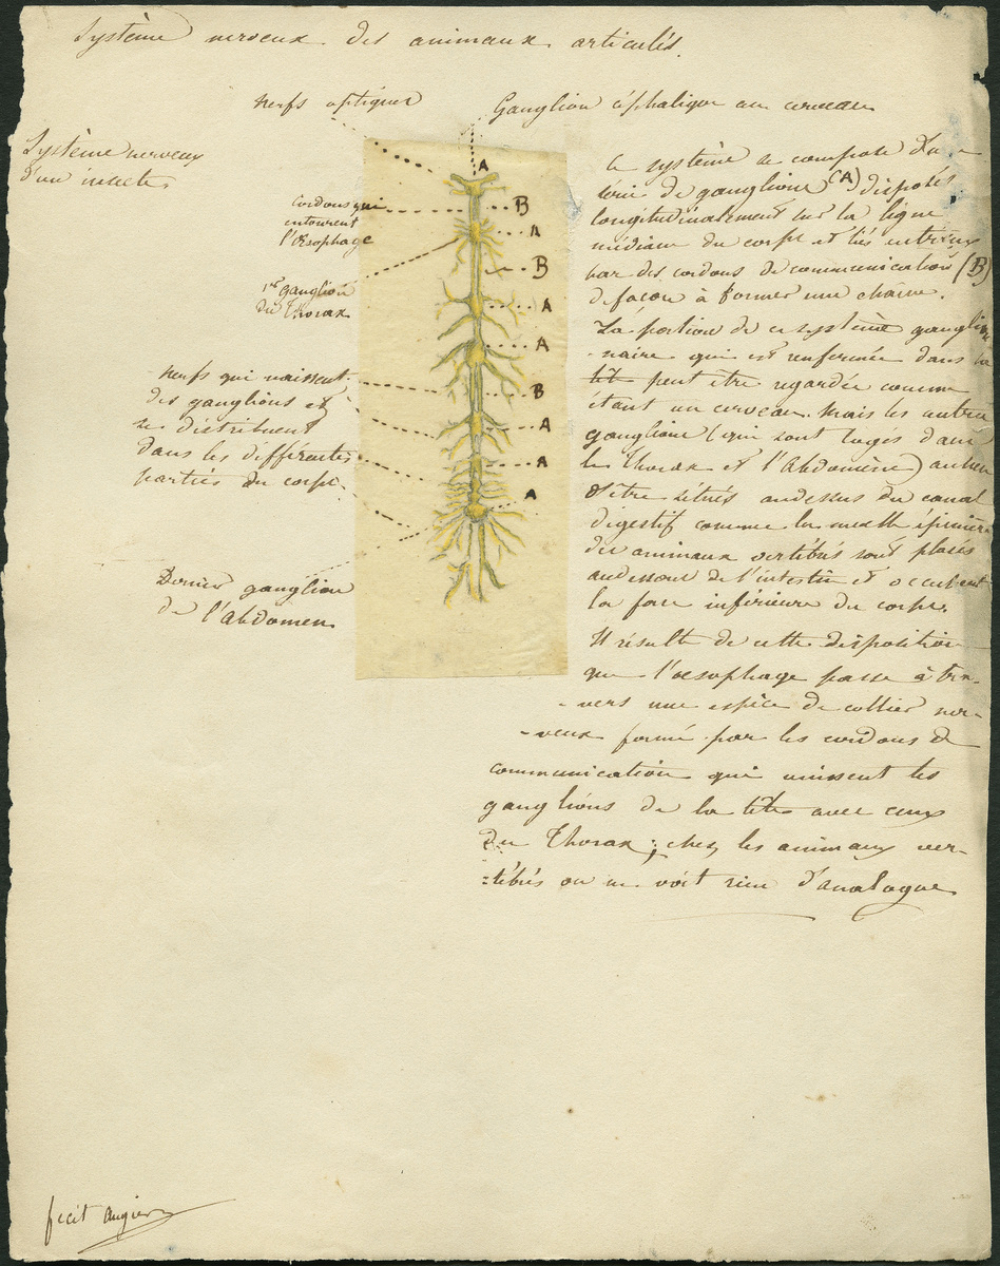 Système nerveux des animaux articulés.
nerfs optiques
Ganglion céphalique ou cerveau
Système nerveux
d'un insecte
cordons qui
entourent
l'Œsophage
1er ganglion
du Thorax
nerfs qui naissent
des ganglions et
se distribuent
dans les différentes
parties du corps
Dernier ganglion
de l'abdomen
A
B
A
B
A
A
B
A
A
A
ce système se compose d'une
série de ganglions (A) disposés
longitudinalement sur la ligne
médiane du corps et liés entr'eux
par des cordons de communication (B)
de façon à former une chaîne.
La portion de ce système ganglion
-naire qui est renfermée dans la
tête peut être regardée comme
étant un cerveau. Mais les autres
ganglions (qui sont logés dans
le Thorax et l'Abdomène) au lieu
d'être situés audessus du canal
digestif comme la moelle épinière
des animaux vertébrés sont placés
audessous de l'intestin et occupent
la face inférieure du corps.
Il résulte de cette disposition
que l'œsophage passe à tra-
-vers une espèce de collier ner-
-veux formé par les cordons de
communication qui unissent les
ganglions de la tête avec ceux
du Thorax ; chez les animaux ver-
-tébrés on ne voit rien d'analogue
fecit Augier